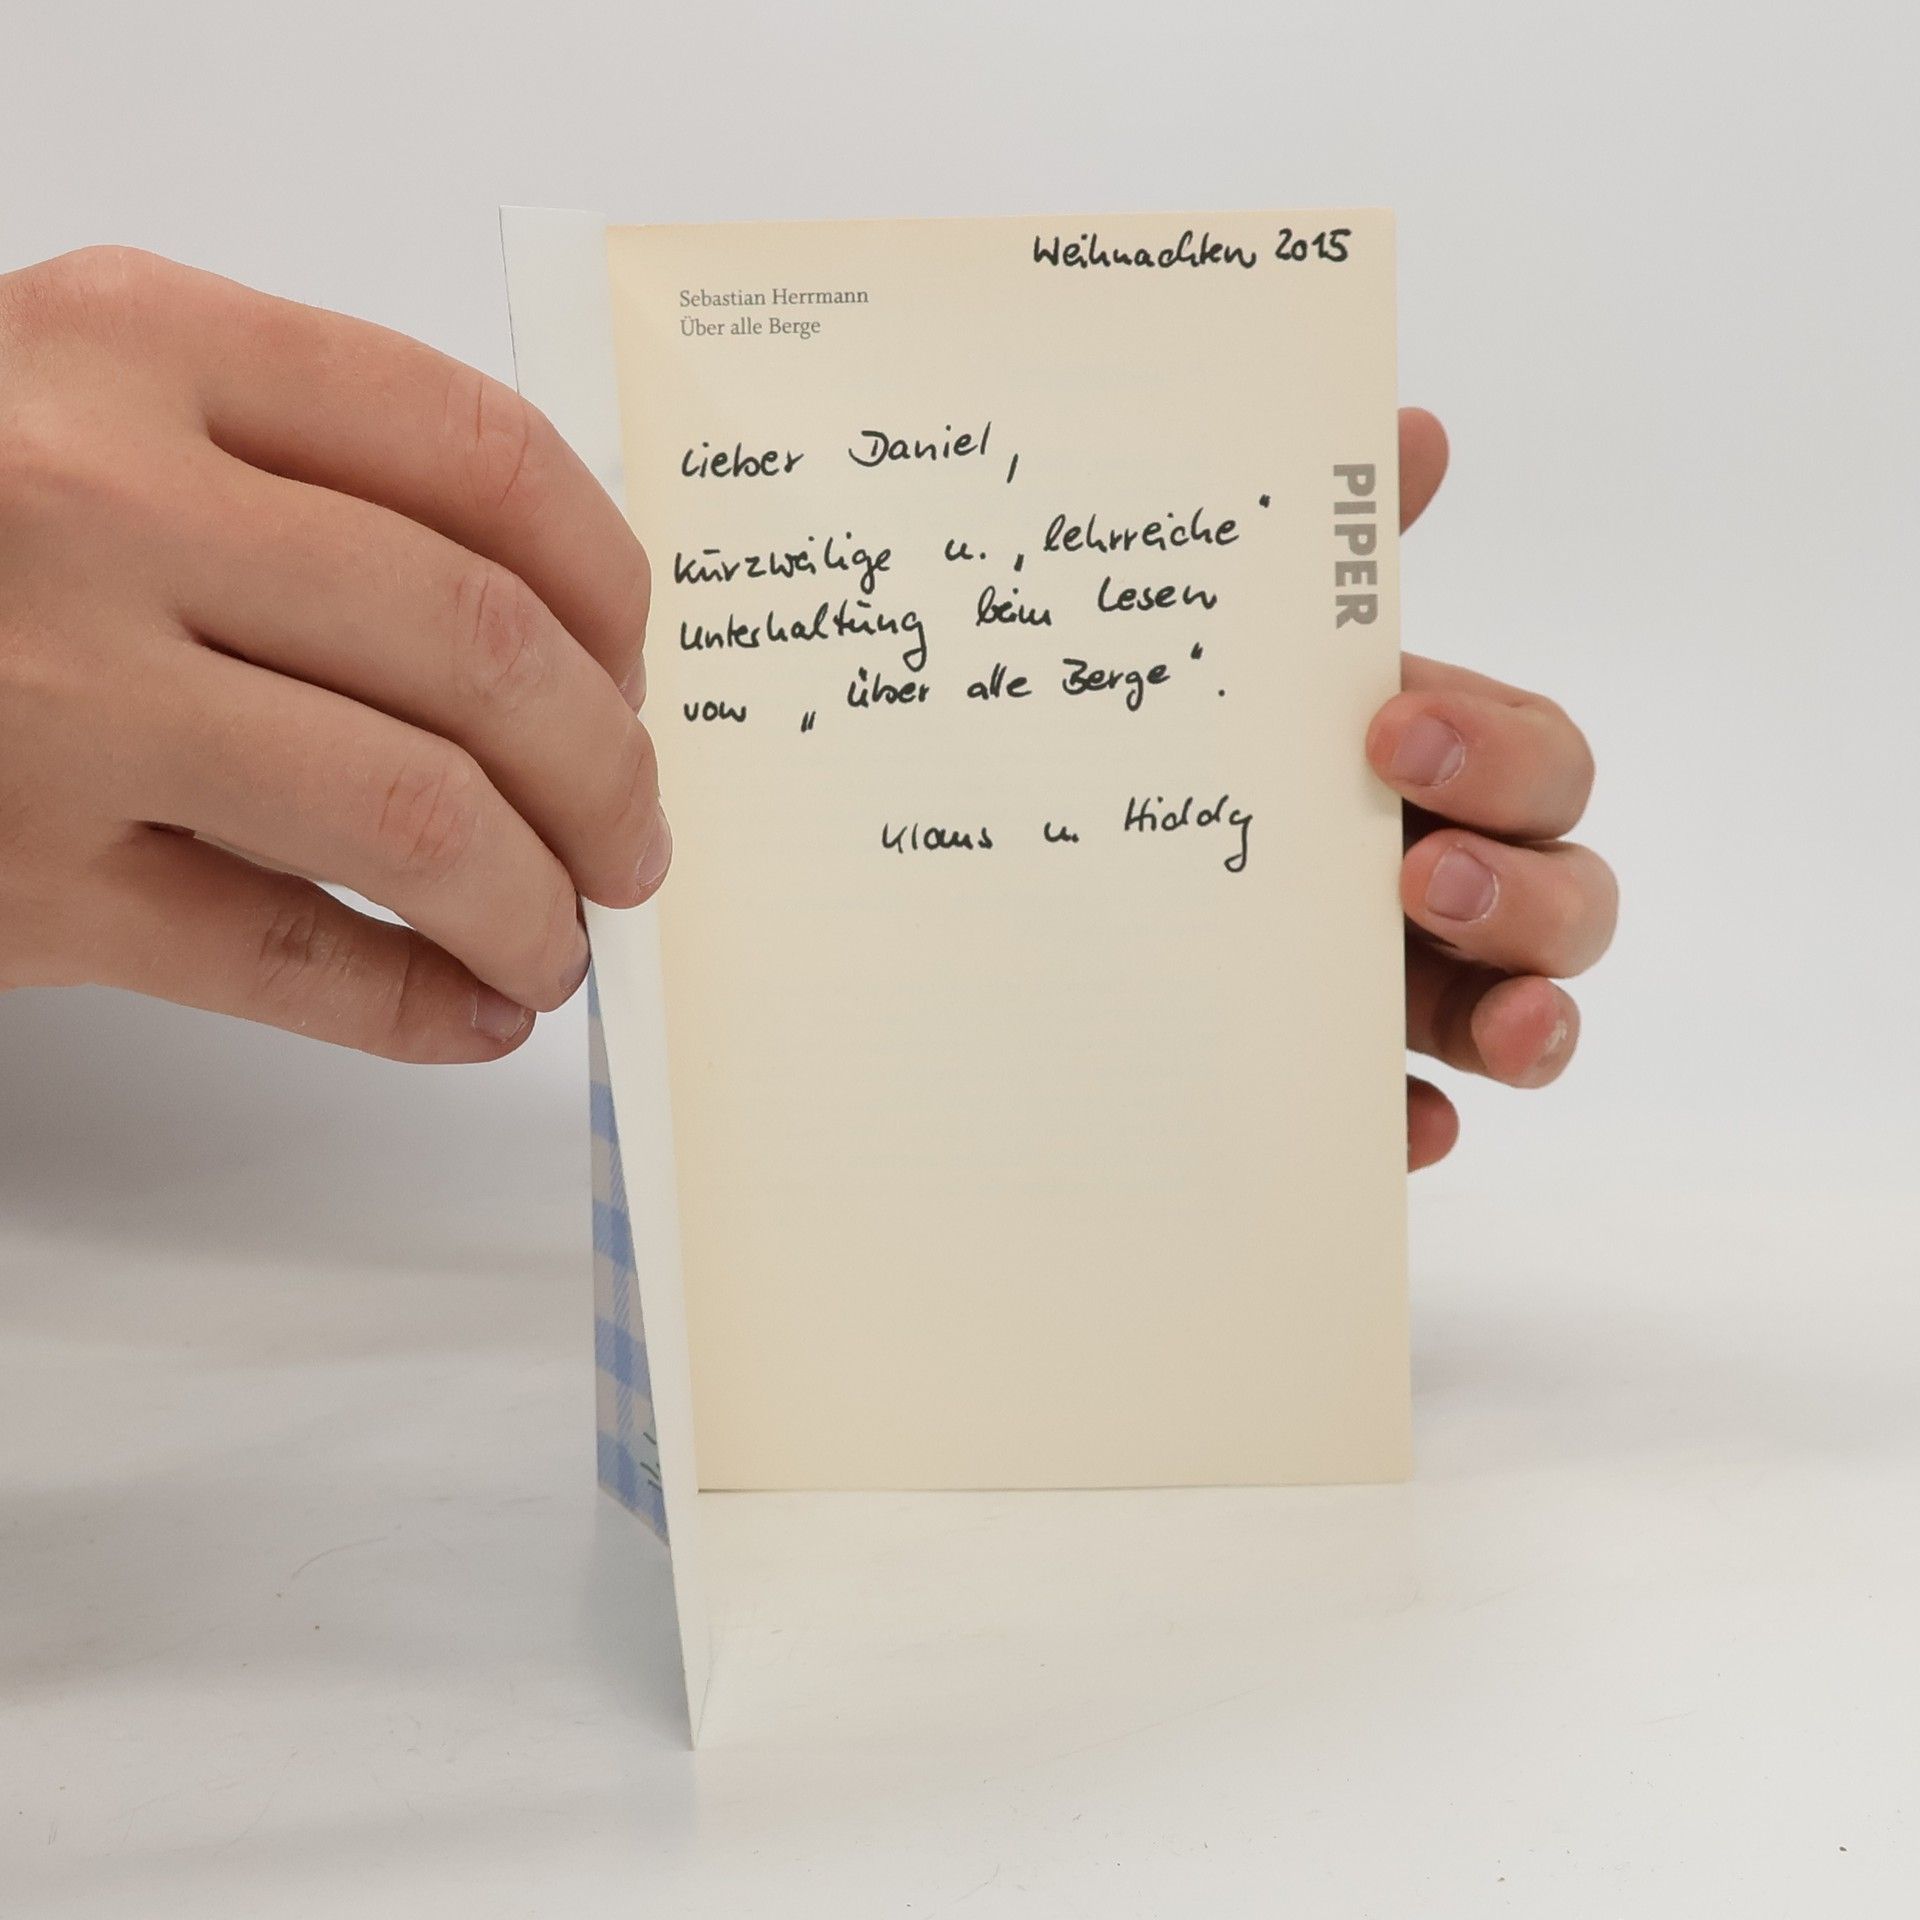 Weihnachten 2015
Sebastian Herrmann
Über alle Berge
Lieber Daniel,
PIPER
kurzweilige u. „lehrreiche“
Unterhaltung beim Lesen
von „Über alle Berge“.
Klaus u. Hiddy